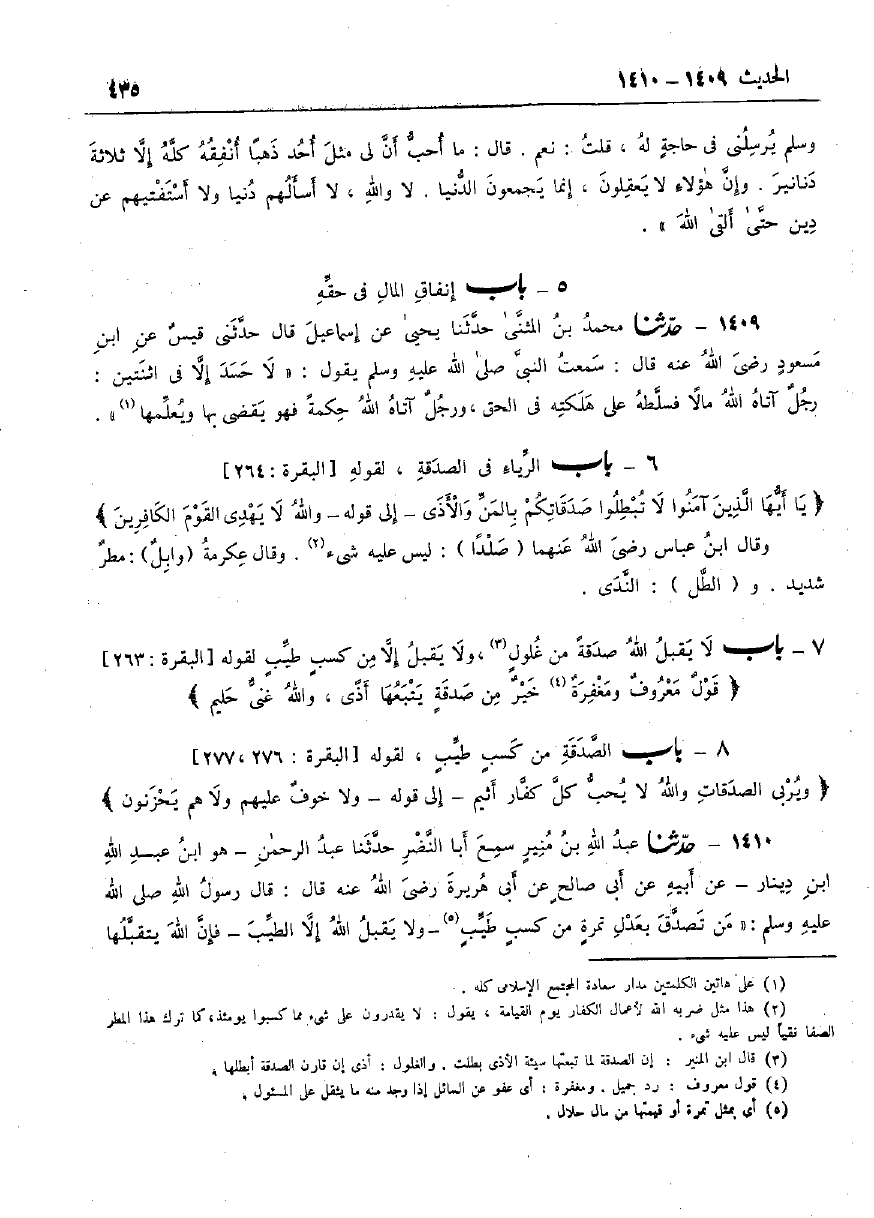 الحديث ١٤٠٩ – ١٤١٠
٤٣٥
وسلم يُرسِلُنى فى حاجةٍ لهُ ، قلتُ : نعم . قال : ما أحبُّ أنَّ لى مثلَ أُحد ذَهبًا أُنْفِقُهُ كلَّهُ إلَّا ثلاثةَ
دَنانيرَ . وإنَّ هٰؤلاءِ لا يَعقِلونَ ، إنما يَجمعونَ الدُّنيا . لا واللهِ ، لا أسألُهم دُنيا ولا أَسْتَفْتيهم عن
دِين حتَّىٰ ألقىٰ اللهَ » .
٥ – باب إنفاقِ المالِ فى حقِّهِ
١٤٠٩ – حدّثنا محمدُ بنُ المثنَّىٰ حدَّثَنا يحيىٰ عن إسماعيلَ قال حدَّثَنى قيسٌ عنِ ابنِ
مَسعودٍ رضىَ اللهُ عنه قال : سَمعتُ النبىَّ صلىٰ الله عليهِ وسلم يقول : « لَا حَسَدَ إلَّا فى اثنَتين :
رجُلٌ آتاهُ اللهُ مالًا فسلَّطهُ على هَلَكتِه فى الحق ، ورجُلٌ آتاهُ اللهُ حِكمةً فهو يَقضى بها ويُعلِّمها (١) » .
٦ – باب الرِّياءِ فى الصدَقةِ ، لقولهِ [ البقرة : ٢٦٤ ]
﴿ يَا أَيُّهَا الَّذِينَ آمَنُوا لَا تُبْطِلُوا صَدَقَاتِكُمْ بِالمَنِّ وَالْأَذَى – إلى قوله – واللهُ لَا يَهْدِى القَوْمَ الكَافِرِينَ ﴾
وقال ابنُ عباس رضىَ اللهُ عَنهما ( صَلْدًا ) : ليس عليه شىء (٢) . وقال عِكرمةُ (وابِلٌ) : مطرٌ
شديد . و ( الطَّل ) : النَّدَى .
٧ – باب لَا يَقبلُ اللهُ صدَقةً من غُلولٍ (٣) ، ولَا يَقبلُ إلَّا مِن كسبٍ طيِّبٍ لقوله [ البقرة : ٢٦٣ ]
﴿ قَوْلٌ مَعْرُوفٌ ومَغْفِرَةٌ (٤) خَيْرٌ مِن صَدقةٍ يَتْبَعُهَا أَذًى ، واللهُ غنىٌّ حَليم ﴾
٨ – باب الصَّدَقَةِ من كَسبٍ طيِّبٍ ، لقوله [ البقرة : ٢٧٦ ، ٢٧٧ ]
﴿ ويُرْبِى الصدَقاتِ واللهُ لا يُحبُّ كلَّ كفَّار أثيم – إلى قوله – ولا خوفٌ عليهم ولا هم يَحْزَنون ﴾
١٤١٠ – حدّثنا عبدُ اللهِ بنُ مُنيرٍ سمِعَ أبا النَّضْرِ حدثَّنا عبدُ الرحمٰنِ – هو ابنُ عبدِ اللهِ
ابنِ دِينار – عن أبيهِ عن أبى صالحٍ عن أبى هُريرةَ رضىَ اللهُ عنه قال : قال رسولُ اللهِ صلى الله
عليهِ وسلم : « مَن تَصدَّقَ بعَدْلِ تمرةٍ من كسبٍ طَيِّبٍ (٥) – ولا يَقبلُ اللهُ إلَّا الطيِّبَ – فإنَّ اللهَ يتقبَّلُها
(١) على هاتين الكلمتين مدار سعادة المجتمع الإسلامى كله .
(٢) هذا مثل ضربه الله لأعمال الكفار يوم القيامة ، يقول : لا يقدرون على شىء مما كسبوا يومئذ ، كما ترك هذا المطر
الصفا نقياً ليس عليه شىء .
(٣) قال ابن المنير : إن الصدقة لما تبعتها سيئة الأذى بطلت . والغلول : أذى إن قارن الصدقة أبطلها .
(٤) قول معروف : رد جميل . ومغفرة : أى عفو عن السائل إذا وجد منه ما يثقل على المسئول .
(٥) أى بمثل تمرة أو قيمتها من مال حلال .